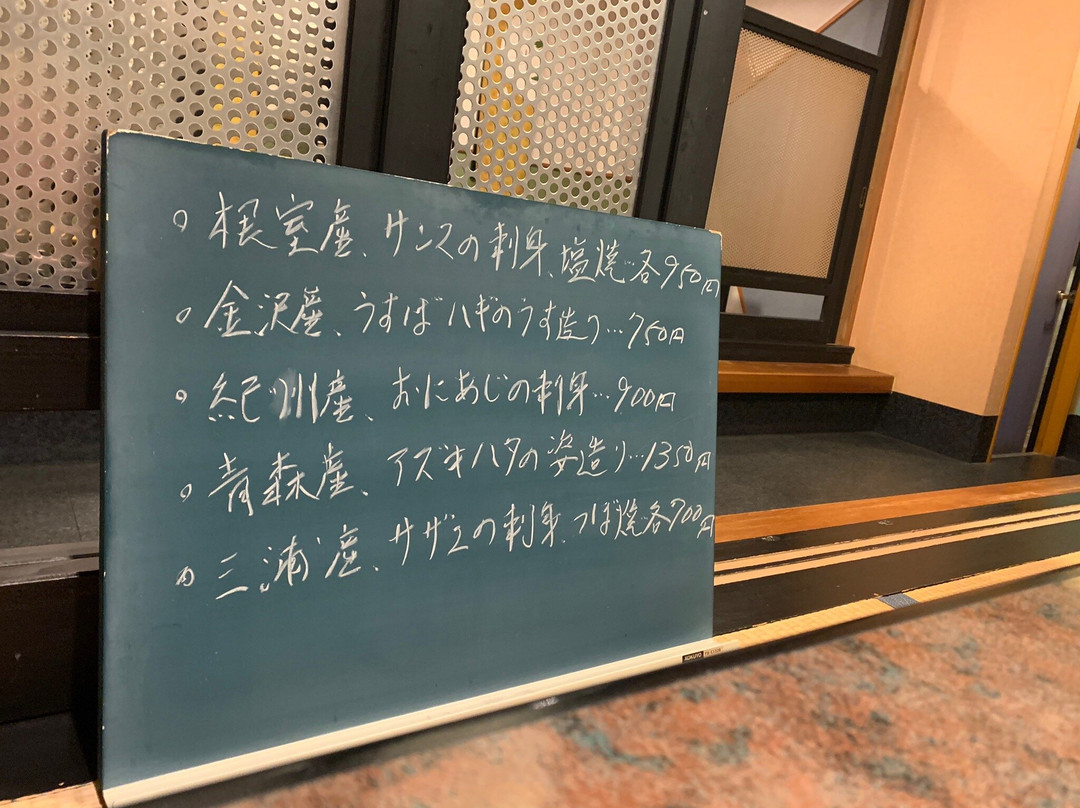 ○根室産、サンマの刺身、塩焼…各950円
○金沢産、うすばハギのうす造り…750円
○紀州産、おにあじの刺身…900円
○青森産、アズキハタの姿造り…1350円
○三浦産、サザエの刺身、つぼ焼…各700円
KOKUYO